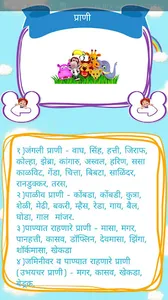 प्राणी
१)जंगली प्राणी - वाघ, सिंह, हत्ती, जिराफ,
कोल्हा, झेब्रा, कांगारु, अस्वल, हरिण, ससा
काळविट, गेंडा, चित्ता, बिबटा, साळिंदर,
रानडुक्कर, तरस,
२)पाळीव प्राणी - कोंबडा, कोंबडी, कुत्रा,
शेळी, मेंढी, बकरी, म्हैस, रेडा, गाय, बैल,
घोडा, गाल मांजर.
३)पाण्यात राहणारे प्राणी - मासा, मगर,
पानहत्ती, कासव, डॉल्फिन, देवमासा, झिंगा,
शॉर्कमासा, खेकडा
४)जमिनीवर व पाण्यात राहणारे प्राणी
(उभयचर प्राणी) - मगर, कासव, खेकडा,
बेडूक